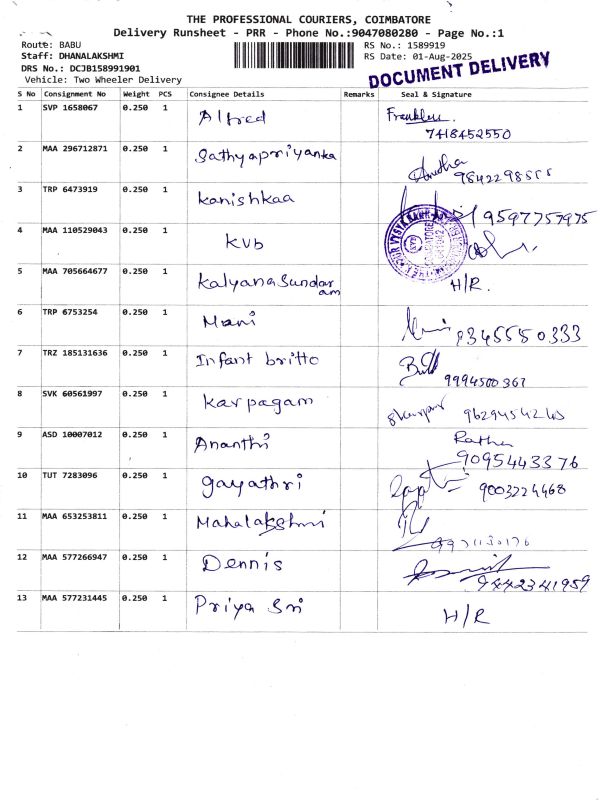 THE PROFESSIONAL COURIERS, COIMBATORE
Delivery Runsheet - PRR - Phone No.:9047080280 - Page No.:1
Route: BABU
RS No.: 1589919
Staff: DHANALAKSHMI
RS Date: 01-Aug-2025
DRS No.: DCJB158991901
Vehicle: Two Wheeler Delivery
DOCUMENT DELIVERY
S No Consignment No Weight PCS Consignee Details Remarks Seal & Signature
1 SVP 1658067 0.250 1 Alfred
7418452550
2 MAA 296712871 0.250 1 Sathyapriyanka
3 TRP 6473919 0.250 1 Kanishkaa 9597757975
4 MAA 110529043 0.250 1 KVB
5 MAA 705664677 0.250 1 Kalyanasundar
am
H/R.
6 TRP 6753254 0.250 1 Mani
7 TRZ 185131636 0.250 1 Infant britto
9994500361
8 SVK 60561997 0.250 1 Karpagam
9 ASD 10007012 0.250 1 Ananthi
9095443376
10 TUT 7283096 0.250 1 Gayathri 9003224468
11 MAA 653253811 0.250 1 Mahalakshmi
12 MAA 577266947 0.250 1 Dennis
9442341959
13 MAA 577231445 0.250 1 Priya Sri H/R